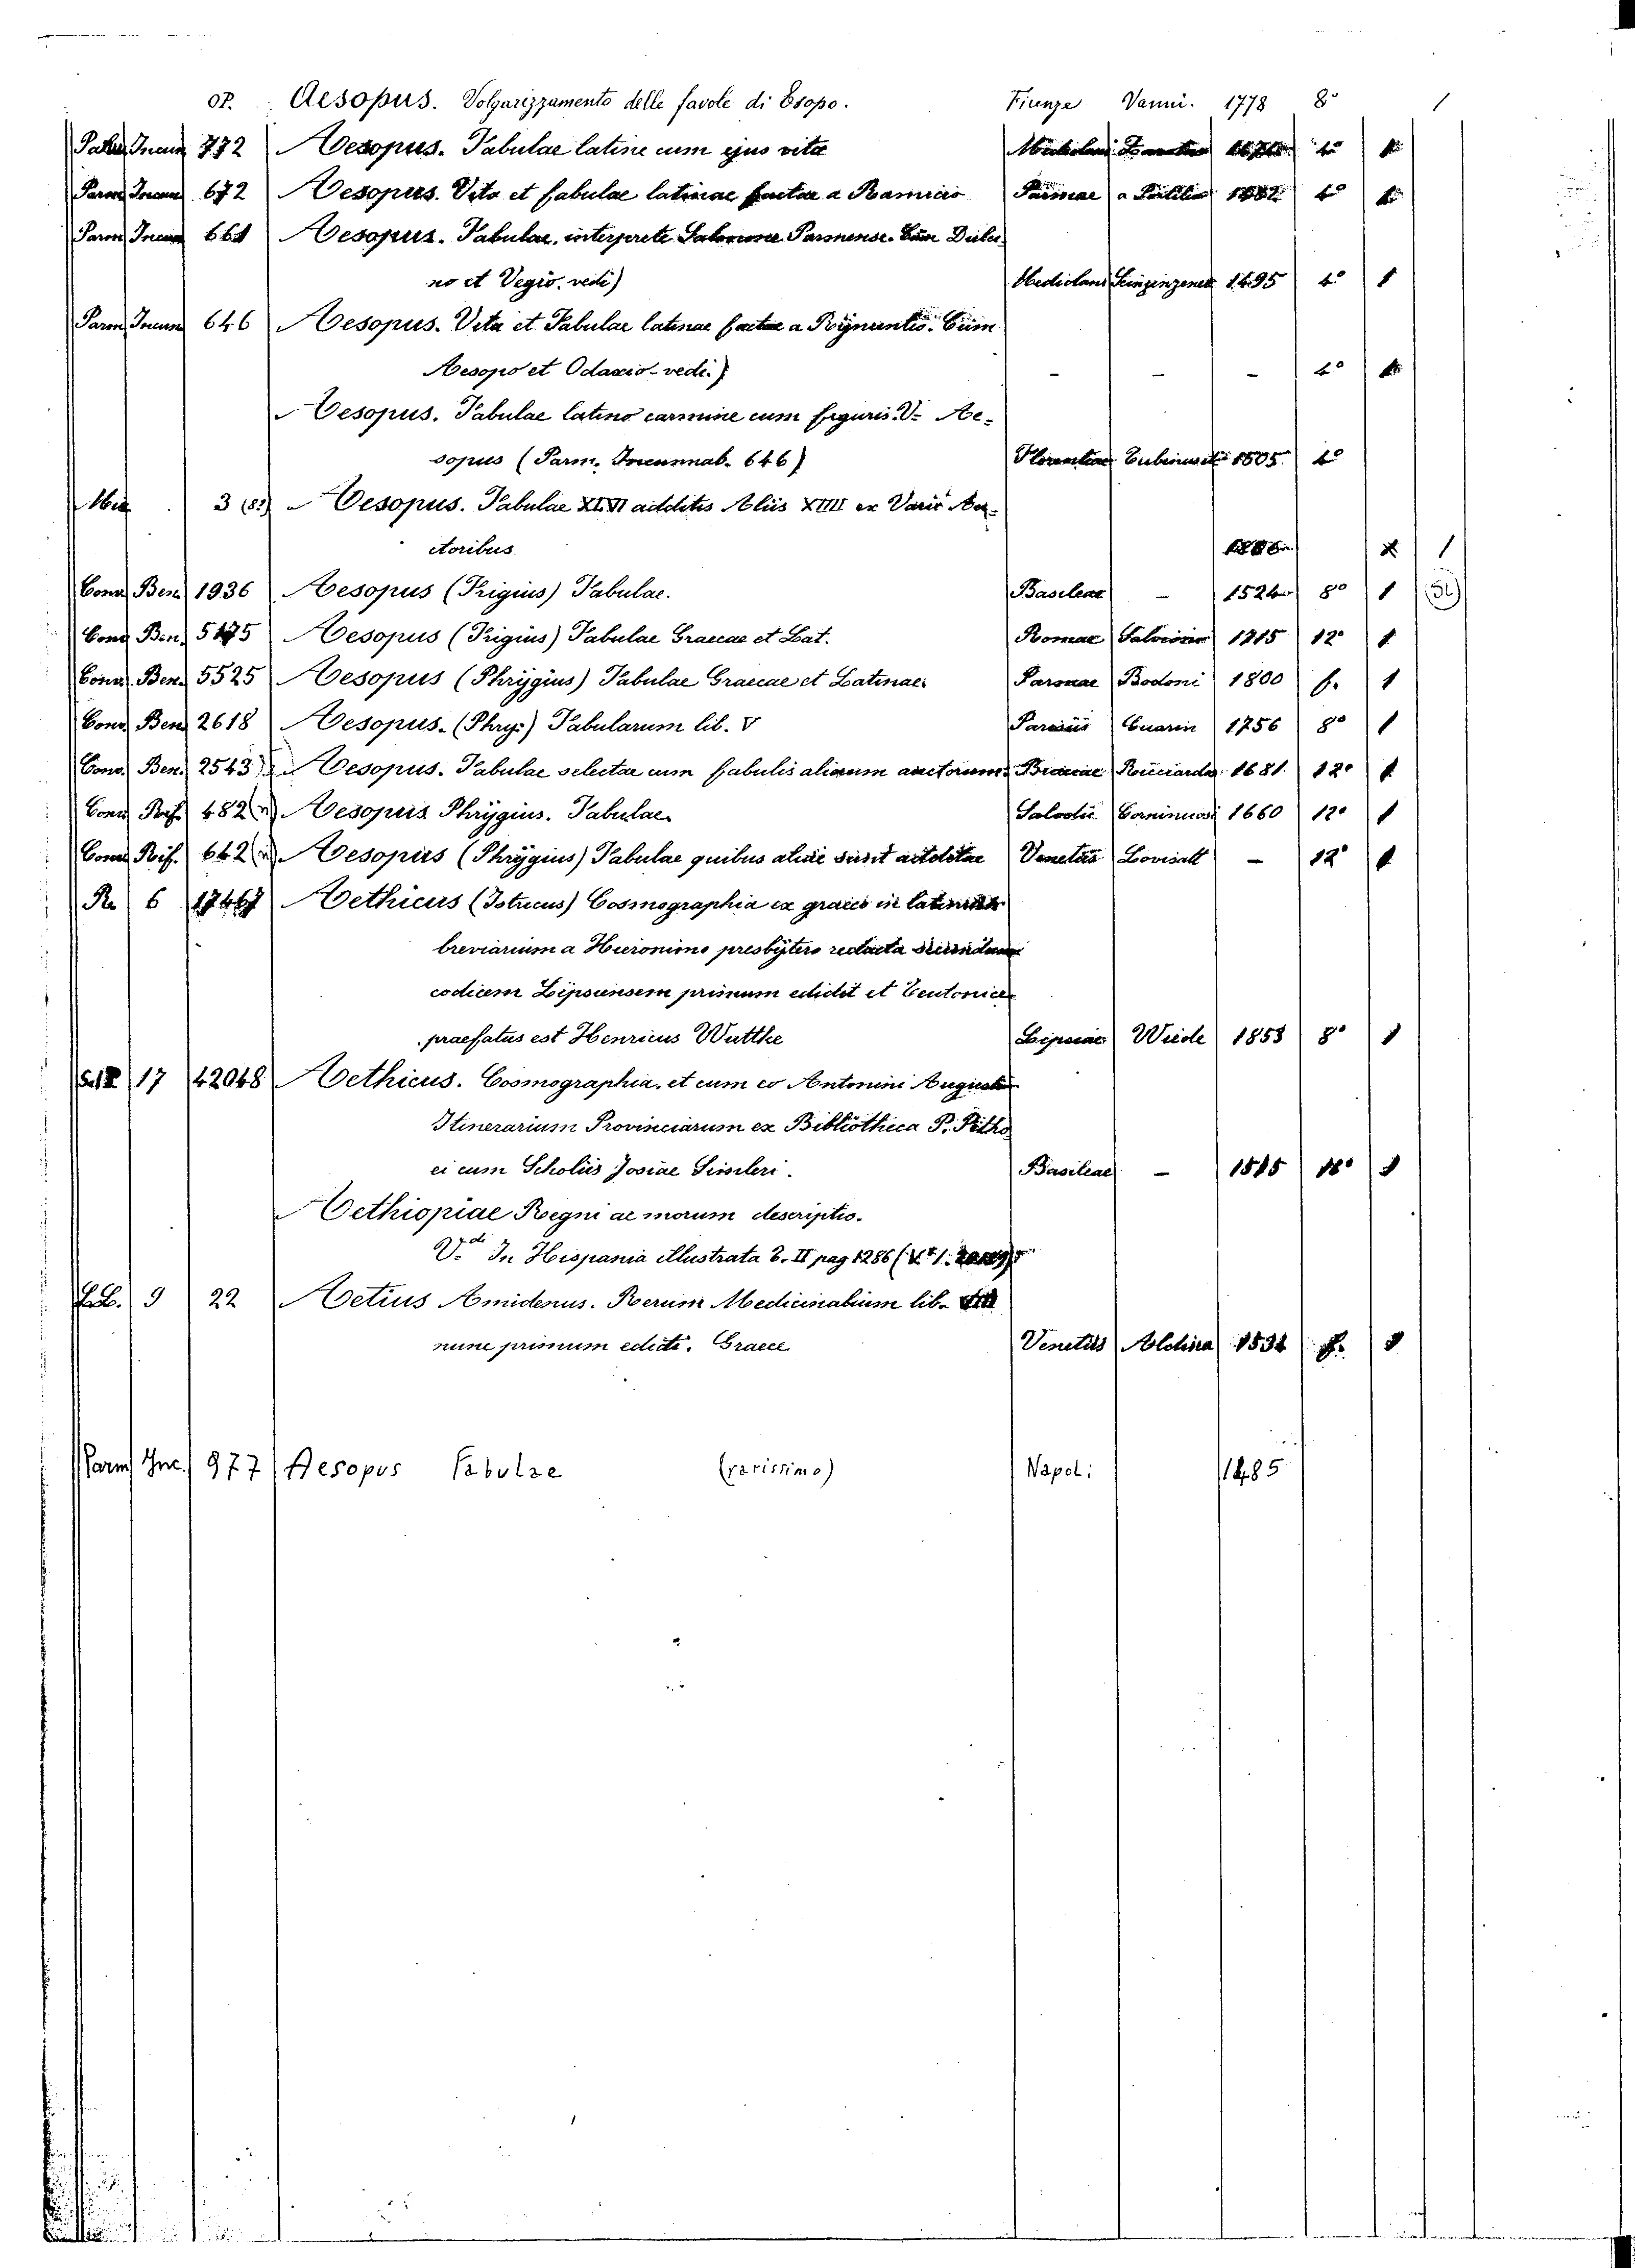 OP. Aesopus. Volgarizzamento delle favole di Esopo. Firenze Vanni. 1778 8° 1
Incun 772 Aesopus. Fabulae latine cum ejus vita 4°
Parm Incun 672 Aesopus. Vita et fabulae latinae factae a Ranucio Parmae a 4°
Parm Incun 661 Aesopus. Fabulae, interprete Salomone Parmense. Cum Dulci
no et Vegio. vedi) Mediolani Scinzenzeler 1495 4° 1
Parm Incun 646 Aesopus. Vita et Fabulae latinae factae a Rynuntio. Cum
Aesopo et Odaxio - vedi.) - - - 4°
Aesopus. Fabulae latino carmine cum figuris. V. Ae-
sopus (Parm. Incunnab. 646) Florentiae 1505 4°
Mis 3 (82) Aesopus. Fabulae XLVI additis Aliis XIIII ex Variis Au-
ctoribus. 1
Conv Ben 1936 Aesopus (Frigius) Fabulae. Basileae - 1524 8° 1
Conv Ben 5175 Aesopus (Frigius) Fabulae Graecae et Lat. Romae Salvioni 1715 12° 1
Conv. Ben. 5525 Aesopus (Phrygius) Fabulae Graecae et Latinae. Parmae Bodoni 1800 f. 1
Conv Ben 2618 Aesopus. (Phry:) Fabularum lib. V Parisiis Guarin 1756 8° 1
Conv. Ben. 2543 Aesopus. Fabulae selectae cum fabulis aliorum auctorum. Brixiae Ricciardo 1681 12° 1
Conv Rif. 482 Aesopus Phrygius. Fabulae. Salodii 1660 12° 1
Conv Rif. 642 Aesopus (Phrygius) Fabulae quibus aliae sunt additae Venetiis Lovisatt - 12° 1
Ra 6 17467 Aethicus (Istricus) Cosmographia ex graeco in latinum
breviarium a Hieronimo presbytero redacta secundum
codicem Lipsiensem primum edidit et Teutonice
praefatus est Henricus Wuttke Lipsiae Wiede 1853 8° 1
17 42048 Aethicus. Cosmographia, et cum eo Antonini Augusti
Itinerarium Provinciarum ex Bibliothica P. Pitho
ei cum Scholiis Josiae Simleri. Basileae - 1575 1
Aethiopiae Regni ac morum descriptio.
V.de In Hispania illustrata T. II pag 1286
9 22 Aetius Amidenus. Rerum Medicinalium lib.
nunc primum editi. Graece Venetiis Aldina 1534 f. 1
Parm Inc. 977 Aesopus Fabulae (rarissimo) Napoli 1485